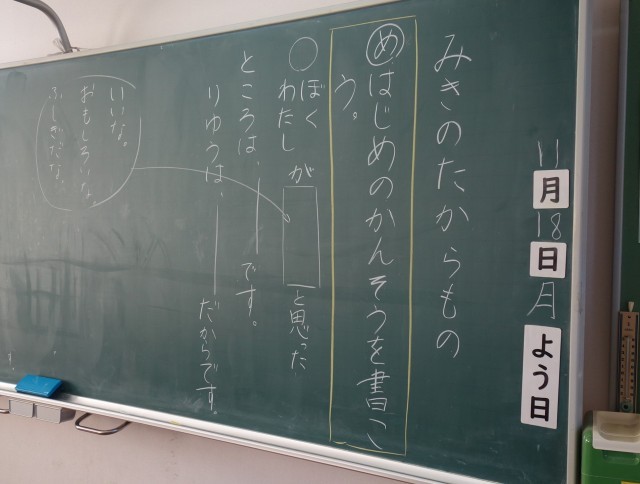 11月18日月よう日
みきのたからもの
めはじめのかんそうを書こ
う。
○ぼく
わたし
が と思った
ところは、 です。
りゆうは、 だからです。
いいな。
おもしろいな。
ふしぎだな。